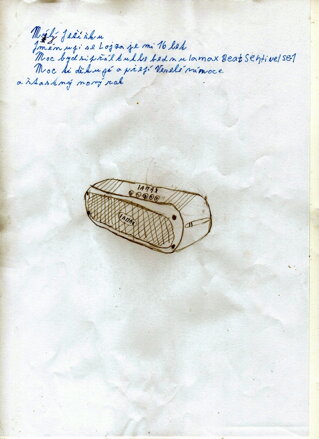 Milý Ježíšku
Jmenuji se Lojza je mi 16 let
Moc bych si přál tuhle bednu Lamax Beat Sentinel SE1
Moc ti děkuji a přeji Veselé vánoce
a šťastný nový rok
LAMAX
LAMAX